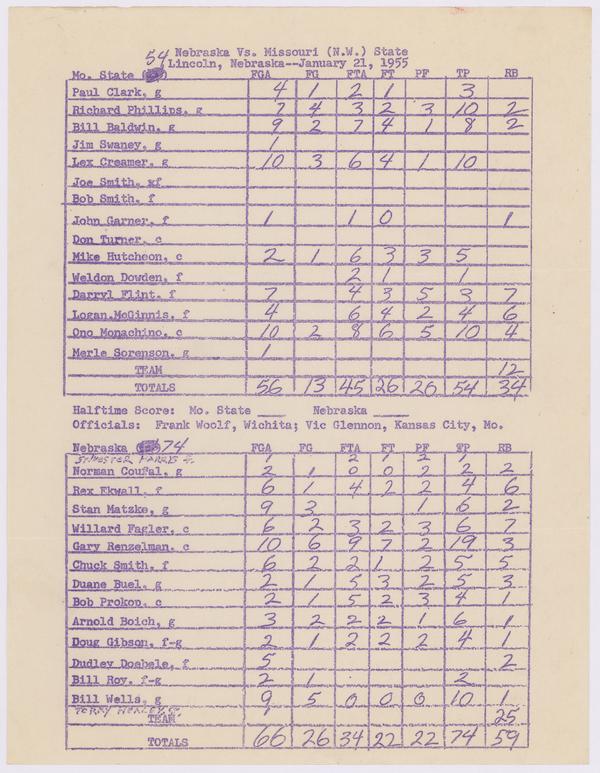 Nebraska Vs. Missouri (N.W.) State
Lincoln, Nebraska--January 21, 1955
Mo. State 54 FGA FG FTA FT PF TP RB
Paul Clark, g 4 1 2 1 3
Richard Phillips, g 7 4 3 2 3 10 2
Bill Baldwin, g 9 2 7 4 1 8 2
Jim Swaney, g 1
Lex Creamer, g 10 3 6 4 1 10
Joe Smith, xf
Bob Smith, f
John Garner, f 1 1 0 1
Don Turner, c
Mike Hutcheon, c 2 1 6 3 3 5
Weldon Dowden, f 2 1 1
Darryl Flint, f 7 4 3 5 3 7
Logan.McGinnis, f 4 6 4 2 4 6
Ono Monachino, c 10 2 8 6 5 10 4
Merle Sorenson, g 1
TEAM 12
TOTALS 56 13 45 26 20 54 34
Halftime Score: Mo. State ____ Nebraska ____
Officials: Frank Woolf, Wichita; Vic Glennon, Kansas City, Mo.
Nebraska 74 FGA FG FTA FT PF TP RB
1 2 1 2 1
Norman Coufal, g 2 1 0 0 2 2 2
Rex Ekwall, f 6 1 4 2 2 4 6
Stan Matzke, g 9 3 1 6 2
Willard Fagler, c 6 2 3 2 3 6 7
Gary Renzelman, c 10 6 9 7 2 19 3
Chuck Smith, f 6 2 2 1 2 5 5
Duane Buel, g 2 1 5 3 2 5 3
Bob Prokop, c 2 1 5 2 3 4 1
Arnold Boich, g 3 2 2 2 1 6 1
Doug Gibson, f-g 2 1 2 2 2 4 1
Dudley Doebele, f 5 2
Bill Roy, f-g 2 1 2
Bill Wells, g 9 5 0 0 0 10 1
1
TEAM 25
TOTALS 66 26 34 22 22 74 59